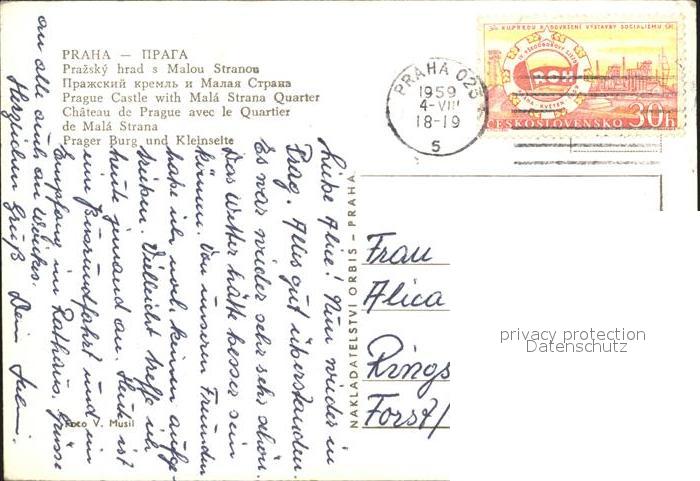 PRAHA — ПРАГА
Pražský hrad s Malou Stranou
Пражский кремль и Малая Страна
Prague Castle with Malá Strana Quarter
Château de Prague avec le Quartier
de Malá Strana
Prager Burg und Kleinseite
PRAHA 025
1959
4-VIII
18-19
5
K UPEVNĚNÍ VÝSTAVBY SOCIALISMU
ČESKOSLOVENSKO 30h
Liebe Alice! Nun wieder in
Prag. Alles gut überstanden.
Es war wieder sehr sehr schön.
Das Wetter hätte besser sein
können. Von unseren Freunden
habe ich noch keinen aufge-
sucht. Vielleicht treffe ich
heute jemand an. Heute ist
eine Busrundfahrt und ein
Empfang im Rathaus. Grüsse
an alle auch an
Herzlichen Gruß Dein
NAKLADATELSTVÍ ORBIS – PRAHA
Frau
Alica
Rings
Forst/
privacy protection
Datenschutz
Foto V. Musil